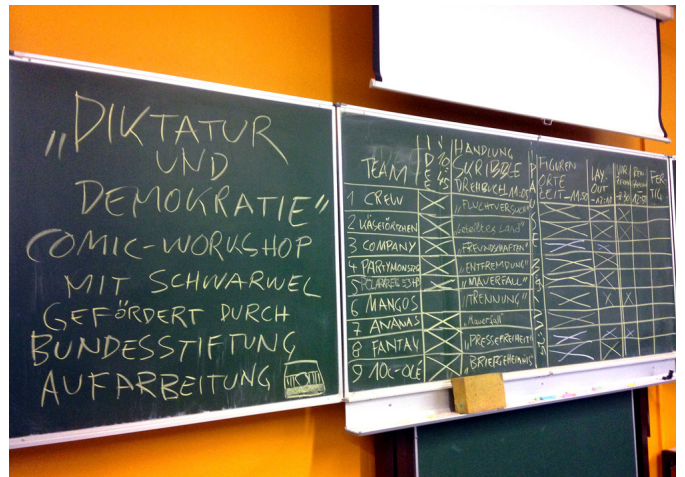 „DIKTATUR
UND
DEMOKRATIE"
COMIC-WORKSHOP
MIT SCHWARWEL
GEFÖRDERT DURCH
BUNDESSTIFTUNG
AUFARBEITUNG
TEAM
HANDLUNG
SKRIBBLE
DREHBUCH
FIGUREN
ORTE
ZEIT
LAY-
OUT
FER-
TIG
1 CREW „FLUCHTVERSUCH"
2 KÄSETÖRTCHEN Land"
3 COMPANY „FREUNDSCHAFTEN"
4 „ENTFREMDUNG"
5 „MAUERFALL"
6 MANGOS „TRENNUNG"
7 ANANAS „Mauerfall"
8 FANTAY „PRESSEFREIHEIT"
9 „BRIEFGEHEIMNIS